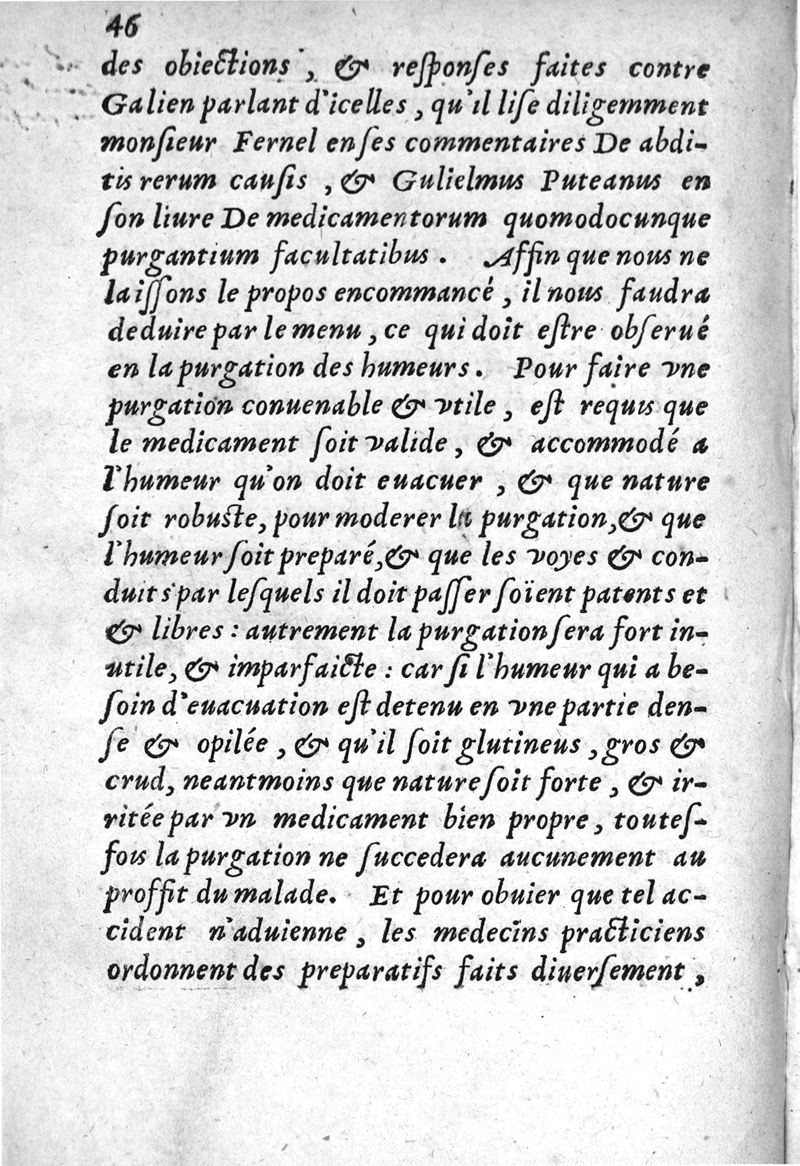 46
des obiections, & reſponſes faites contre
Galien parlant d'icelles, qu'il liſe diligemment
monſieur Fernel en ſes commentaires De abdi-
tis rerum cauſis, & Gulielmus Puteanus en
ſon liure De medicamentorum quomodocunque
purgantium facultatibus. Affin que nous ne
laiſſons le propos encommancé, il nous faudra
deduire par le menu, ce qui doit eſtre obſerué
en la purgation des humeurs. Pour faire vne
purgation conuenable & vtile, eſt requis que
le medicament ſoit valide, & accommodé a
l'humeur qu'on doit euacuer, & que nature
ſoit robuſte, pour moderer la purgation, & que
l'humeur ſoit preparé, & que les voyes & con-
duits par leſquels il doit paſſer ſoïent patents et
& libres: autrement la purgation ſera fort in-
utile, & imparfaicte: car ſi l'humeur qui a be-
ſoin d'euacuation eſt detenu en vne partie den-
ſe & opilée, & qu'il ſoit glutineus, gros &
crud, neantmoins que nature ſoit forte, & ir-
ritée par vn medicament bien propre, touteſ-
fois la purgation ne ſuccedera aucunement au
proffit du malade. Et pour obuier que tel ac-
cident n'aduienne, les medecins practiciens
ordonnent des preparatifs faits diuerſement,